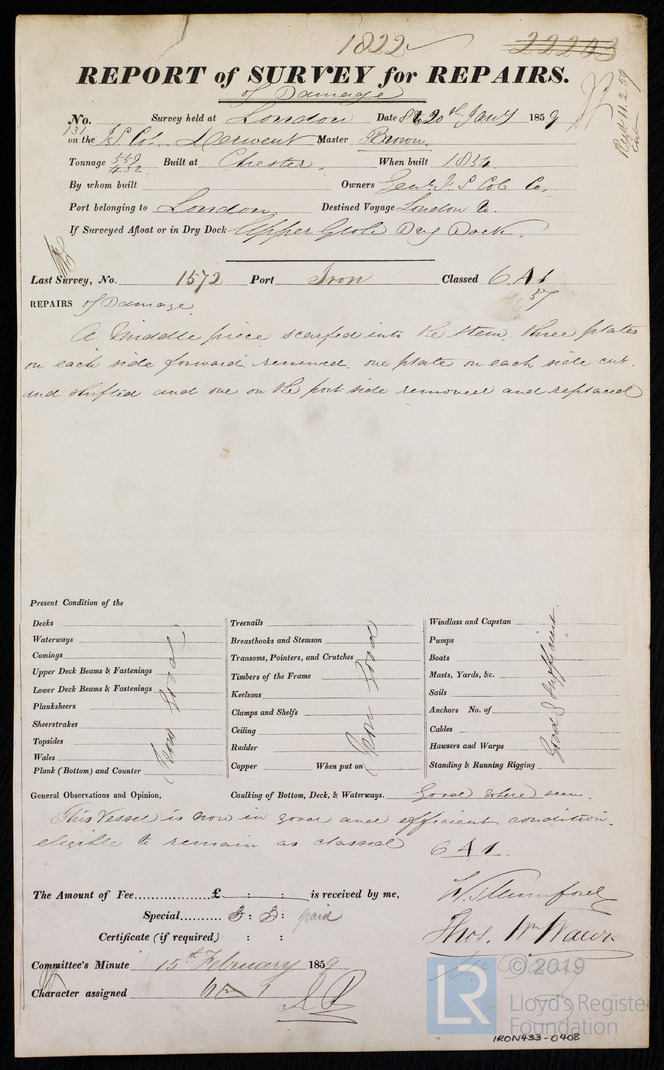 1822 22243
REPORT of SURVEY for REPAIRS.
of Damage
No. 131 Survey held at London Date 20th Jany 1859
Recd 11.2.59
on the Derwent Master Brown
Tonnage 559 432 Built at Chester When built
By whom built Owners Genl. S Co,
Port belonging to London Destined Voyage London
If Surveyed Afloat or in Dry Dock Upper Globe Dry Dock.
Last Survey, No. 1572 Port Iron Classed 6 A 1
57
REPAIRS of Damage
A Middle piece scarfed into the Stem. three plates
on each side forward renewed. one plate on each side cut.
and shifted and one on the port side removed and replaced
Present Condition of the
Decks
Waterways
Comings
Upper Deck Beams & Fastenings
Lower Deck Beams & Fastenings
Planksheers
Sheerstrakes
Topsides
Wales
Plank (Bottom) and Counter
Iron Good
Treenails
Breasthooks and Stemson
Transoms, Pointers, and Crutches
Timbers of the Frame
Keelsons
Clamps and Shelfs
Ceiling
Rudder
Copper When put on
Iron Good
Windlass and Capstan
Pumps
Boats
Masts, Yards, &c.
Sails
Anchors No. of
Cables
Hawsers and Warps
Standing & Running Rigging
Good & Sufficient
General Observations and Opinion, Caulking of Bottom, Deck, & Waterways. Good where seen.
This Vessel is now in good and efficient condition.
eligible to remain as classed 6 A 1.
The Amount of Fee £ : : is received by me,
Special 3 : 3 : paid
Certificate (if required) : :
H. Mumford
Thos. Wm Wawn
Committee's Minute 15th February 1859
Character assigned
© 2019
LR
Lloyd's Register
Foundation
IRON433-0408